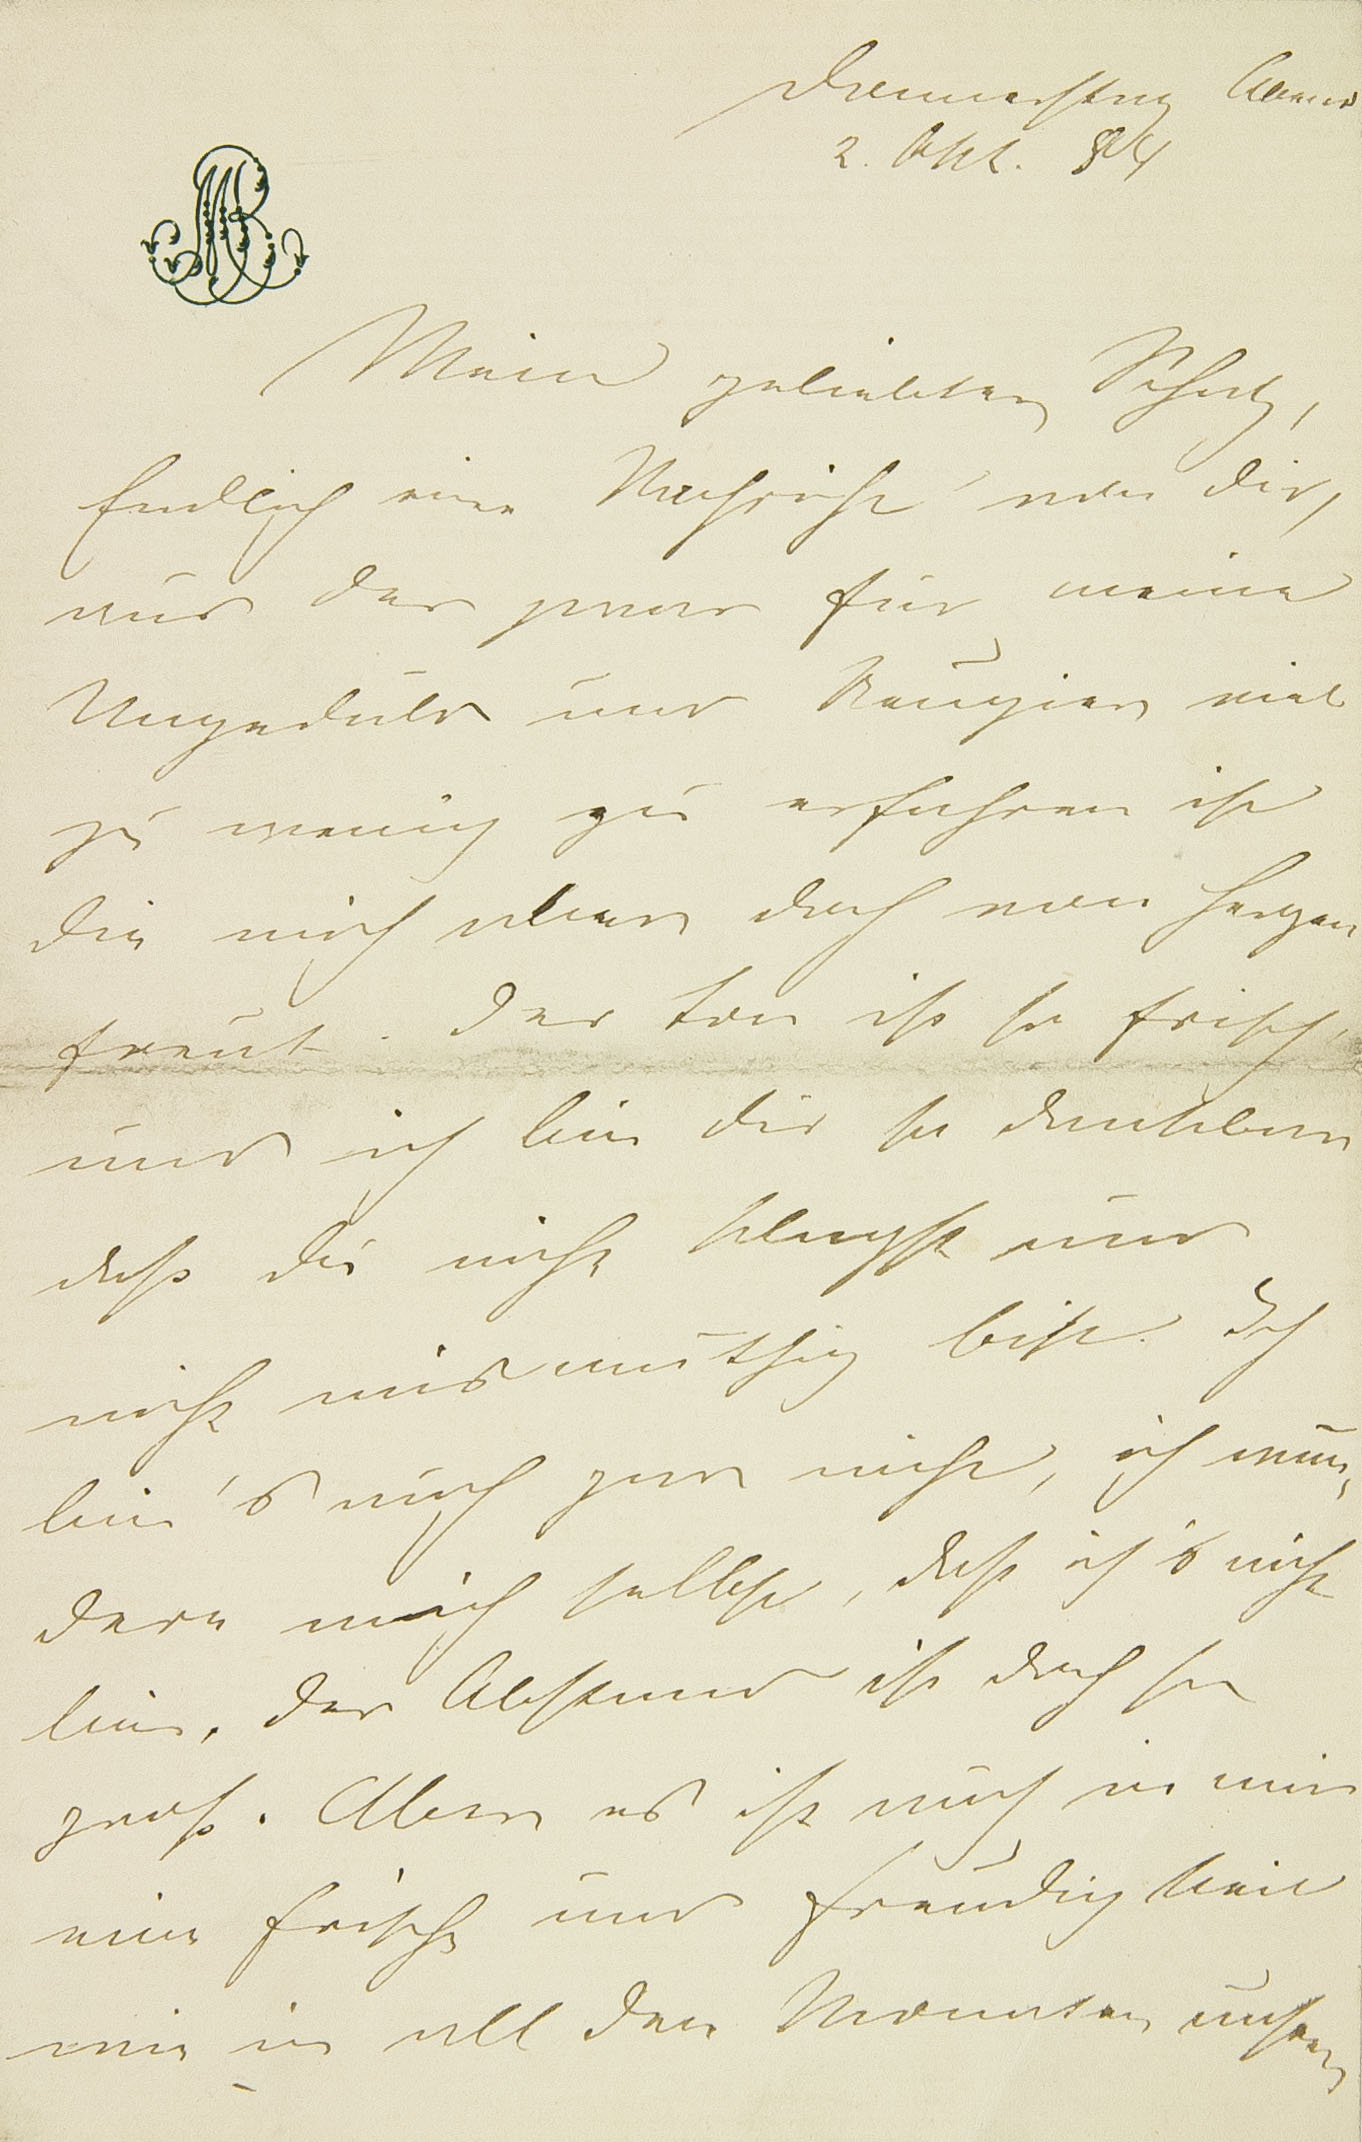 Donnerstag Abend
2. Okt. 84
MB
Mein geliebter Schatz,
Endlich eine Nachricht von dir,
aus der zwar für meine
Ungeduld und Neugier viel
zu wenig zu erfahren ist
die mich aber doch von Herzen
freut. Der Ton ist so frisch,
und ich bin dir so dankbar
daß du nicht klagst und
nicht mismuthig bist. Ich
bin's auch gar nicht, ich wun-
dere mich selbst, daß ich's nicht
bin, der Abstand ist doch so
groß. Aber es ist auch in mir
eine Frische und Freudigkeit
wie in all den Monaten unsrer